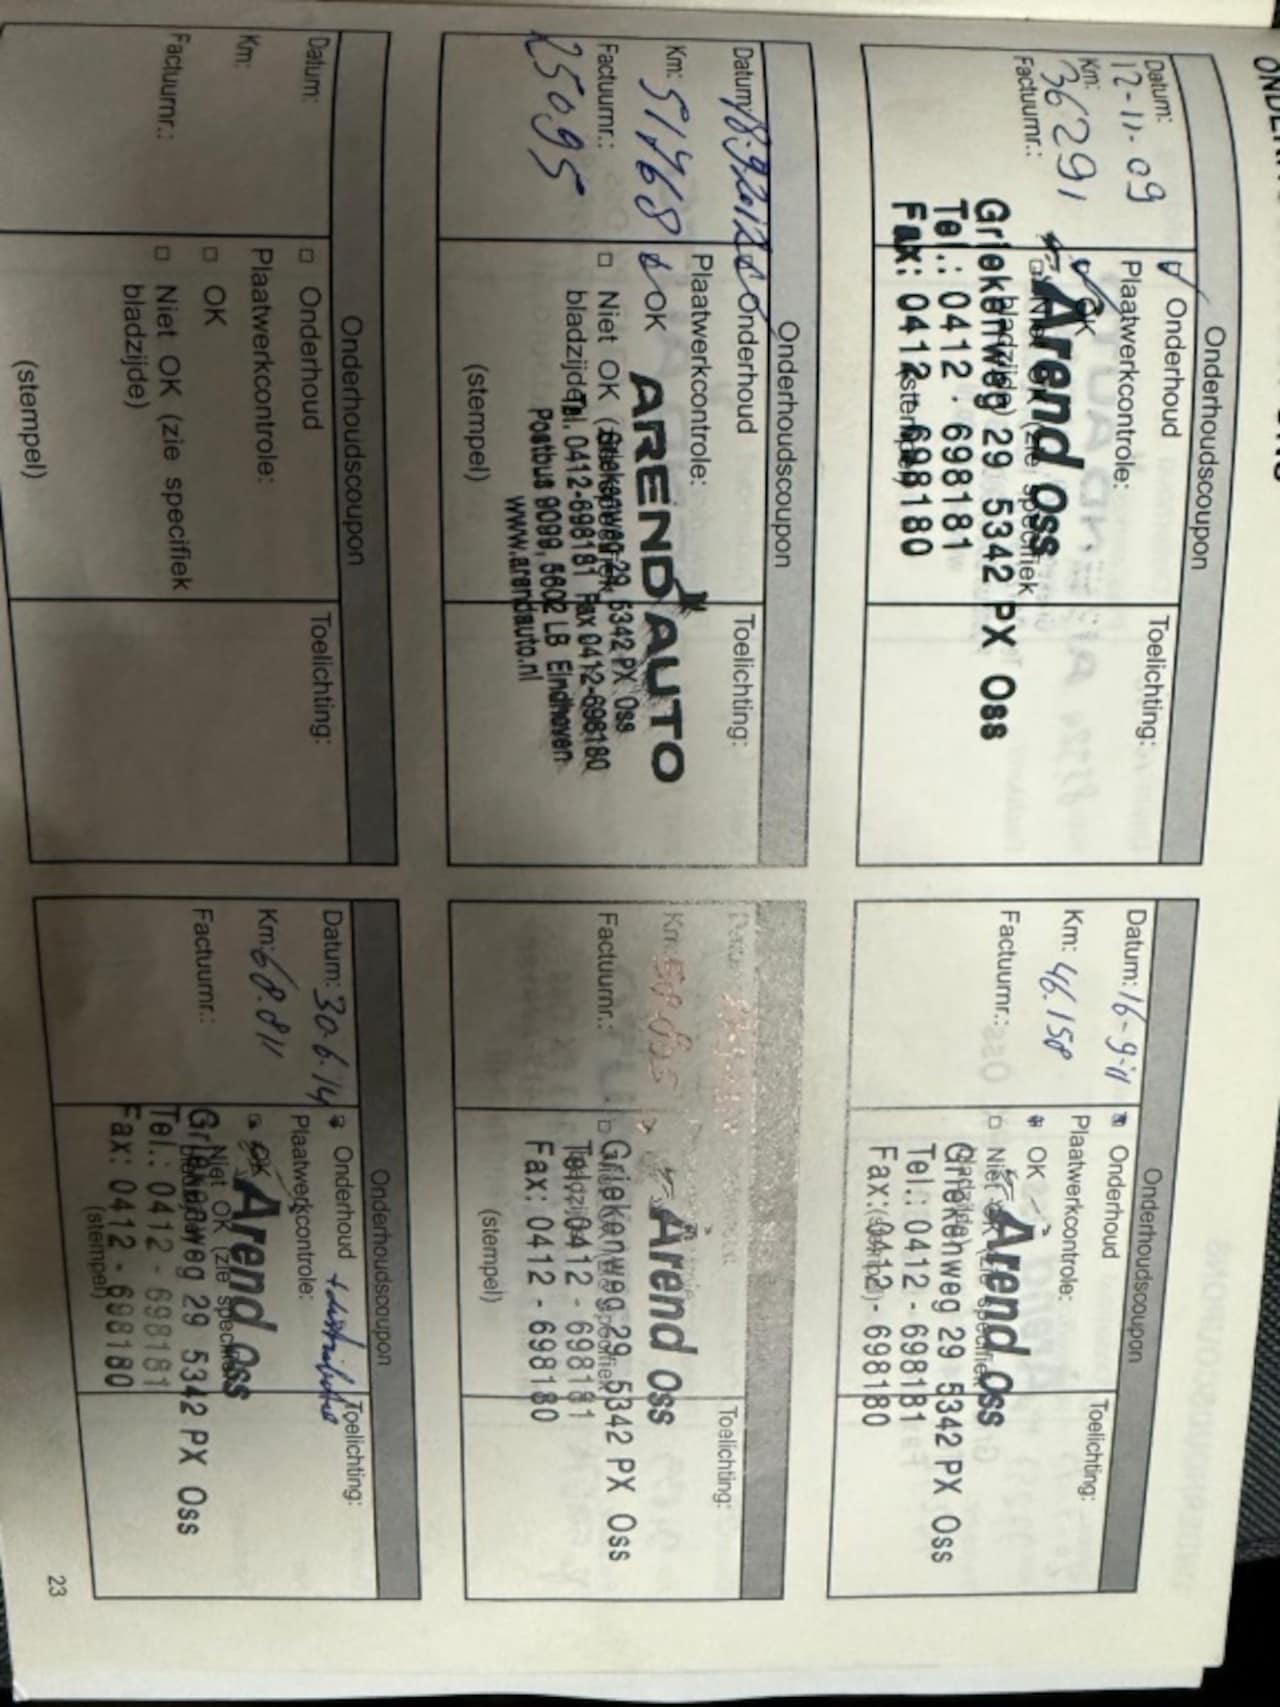 Onderhoudscoupon
Datum:
12-11-09
Km:
36291
Factuurnr.:
Onderhoud
Plaatwerkcontrole:
OK
Toelichting:
Arend Oss
Griekenweg 29 5342 PX Oss
Tel.: 0412 - 698181
Fax: 0412 - 698180
Onderhoudscoupon
Datum: 16-9-11
Km: 46.158
Factuurnr.:
Onderhoud
Plaatwerkcontrole:
OK
Toelichting:
Arend Oss
Griekenweg 29 5342 PX Oss
Tel.: 0412 - 698181
Fax: 0412 - 698180
Onderhoudscoupon
Datum: 18.9.2012
Km: 51768
Factuurnr.:
25095
Onderhoud
Plaatwerkcontrole:
OK
Niet OK (zie specifiek
bladzijde)
(stempel)
Toelichting:
AREND AUTO
Griekenweg 29 5342 PX Oss
Tel. 0412-698181 Fax 0412-698180
Postbus 9099, 5602 LB Eindhoven
www.arendauto.nl
Km:
Factuurnr.:
(stempel)
Toelichting:
Arend Oss
Griekenweg 29 5342 PX Oss
Tel.: 0412 - 698181
Fax: 0412 - 698180
Onderhoudscoupon
Datum:
Km:
Factuurnr.:
Onderhoud
Plaatwerkcontrole:
OK
Niet OK (zie specifiek
bladzijde)
(stempel)
Toelichting:
Onderhoudscoupon
Datum: 30.6.14
Km: 68.811
Factuurnr.:
Onderhoud + distributie
Plaatwerkcontrole:
OK
Niet OK (zie specifiek
(stempel)
Toelichting:
Arend Oss
Griekenweg 29 5342 PX Oss
Tel.: 0412 - 698181
Fax: 0412 - 698180
23